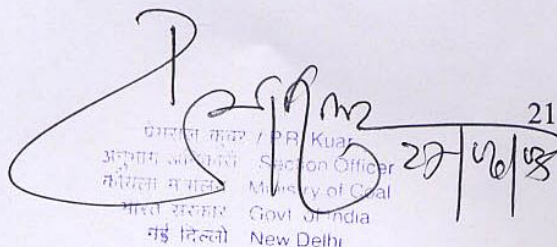 21
प्रेमराज कुवर / P.R. Kuar
अनुभाग अधिकारी Section Officer
कोयला मंत्रालय Ministry of Coal
भारत सरकार Govt of India
नई दिल्ली New Delhi